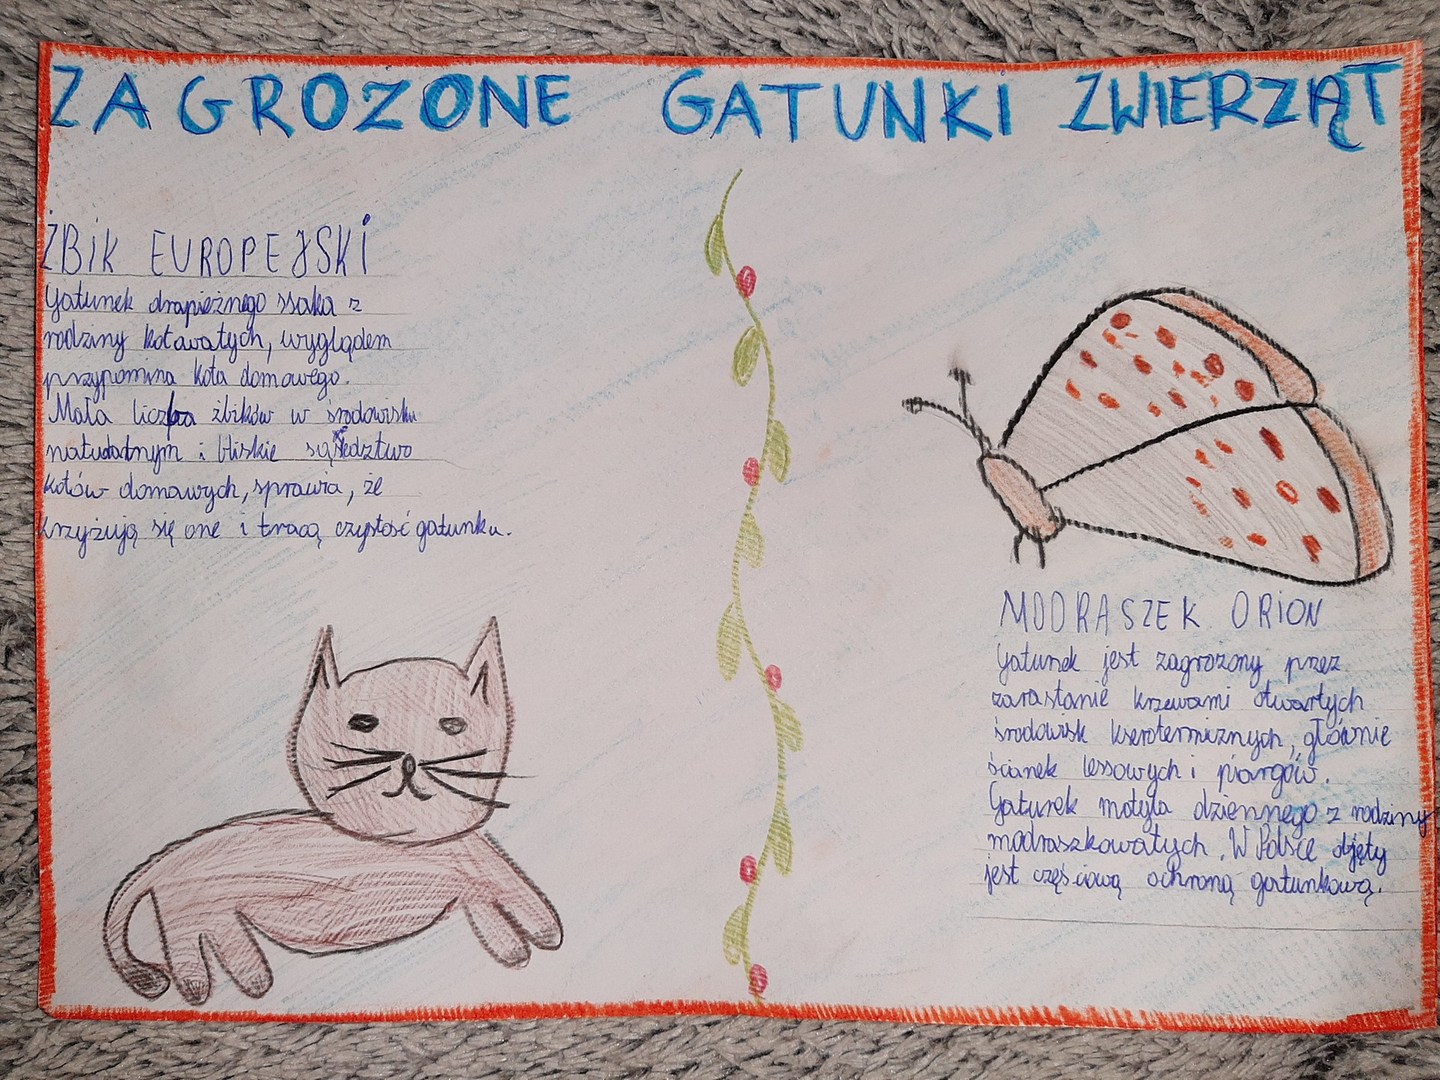 ZAGROŻONE GATUNKI ZWIERZĄT
ŻBIK EUROPEJSKI
Gatunek drapieżnego ssaka z
rodziny kotowatych, wyglądem
przypomina kota domowego.
Mała liczba żbików w środowisku
naturalnym i bliskie sąsiedztwo
kotów domowych, sprawia, że
krzyżują się one i tracą czystość gatunku.
MODRASZEK ORION
Gatunek jest zagrożony przez
zarastanie krzewami otwartych
środowisk kserotermicznych, głównie
ścianek lessowych i piargów.
Gatunek motyla dziennego z rodziny
modraszkowatych. W Polsce objęty
jest częściową ochroną gatunkową.